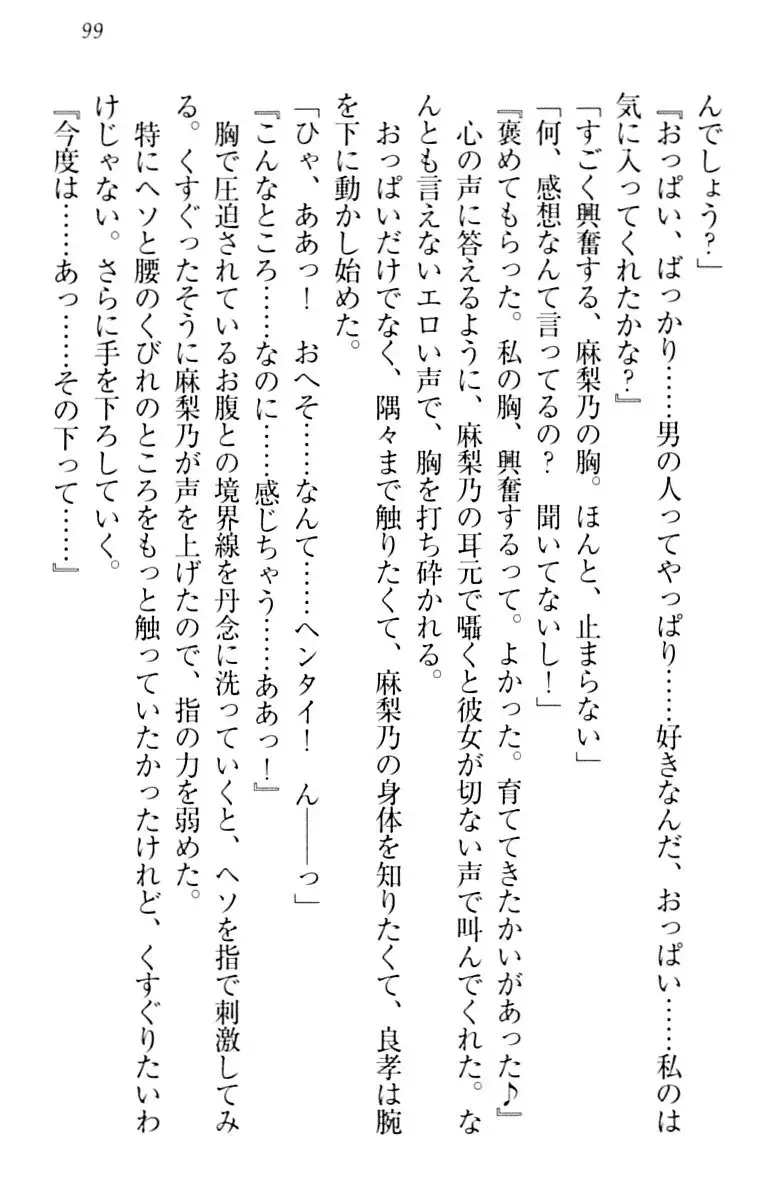 99
んでしょう？」
『おっぱい、ばっかり……男の人ってやっぱり……好きなんだ、おっぱい……私のは
気に入ってくれたかな？』
「すごく興奮する、麻梨乃の胸。ほんと、止まらない」
「何、感想なんて言ってるの？　聞いてないし！」
『褒めてもらった。私の胸、興奮するって。よかった。育ててきたかいがあった♪』
　心の声に答えるように、麻梨乃の耳元で囁くと彼女が切ない声で叫んでくれた。な
んとも言えないエロい声で、胸を打ち砕かれる。
　おっぱいだけでなく、隅々まで触りたくて、麻梨乃の身体を知りたくて、良孝は腕
を下に動かし始めた。
「ひゃ、ああっ！　おへそ……なんて……ヘンタイ！　ん――っ」
『こんなところ……なのに……感じちゃう……ああっ！』
　胸で圧迫されているお腹との境界線を丹念に洗っていくと、ヘソを指で刺激してみ
る。くすぐったそうに麻梨乃が声を上げたので、指の力を弱めた。
　特にヘソと腰のくびれのところをもっと触っていたかったけれど、くすぐりたいわ
けじゃない。さらに手を下ろしていく。
『今度は……あっ……その下って……』